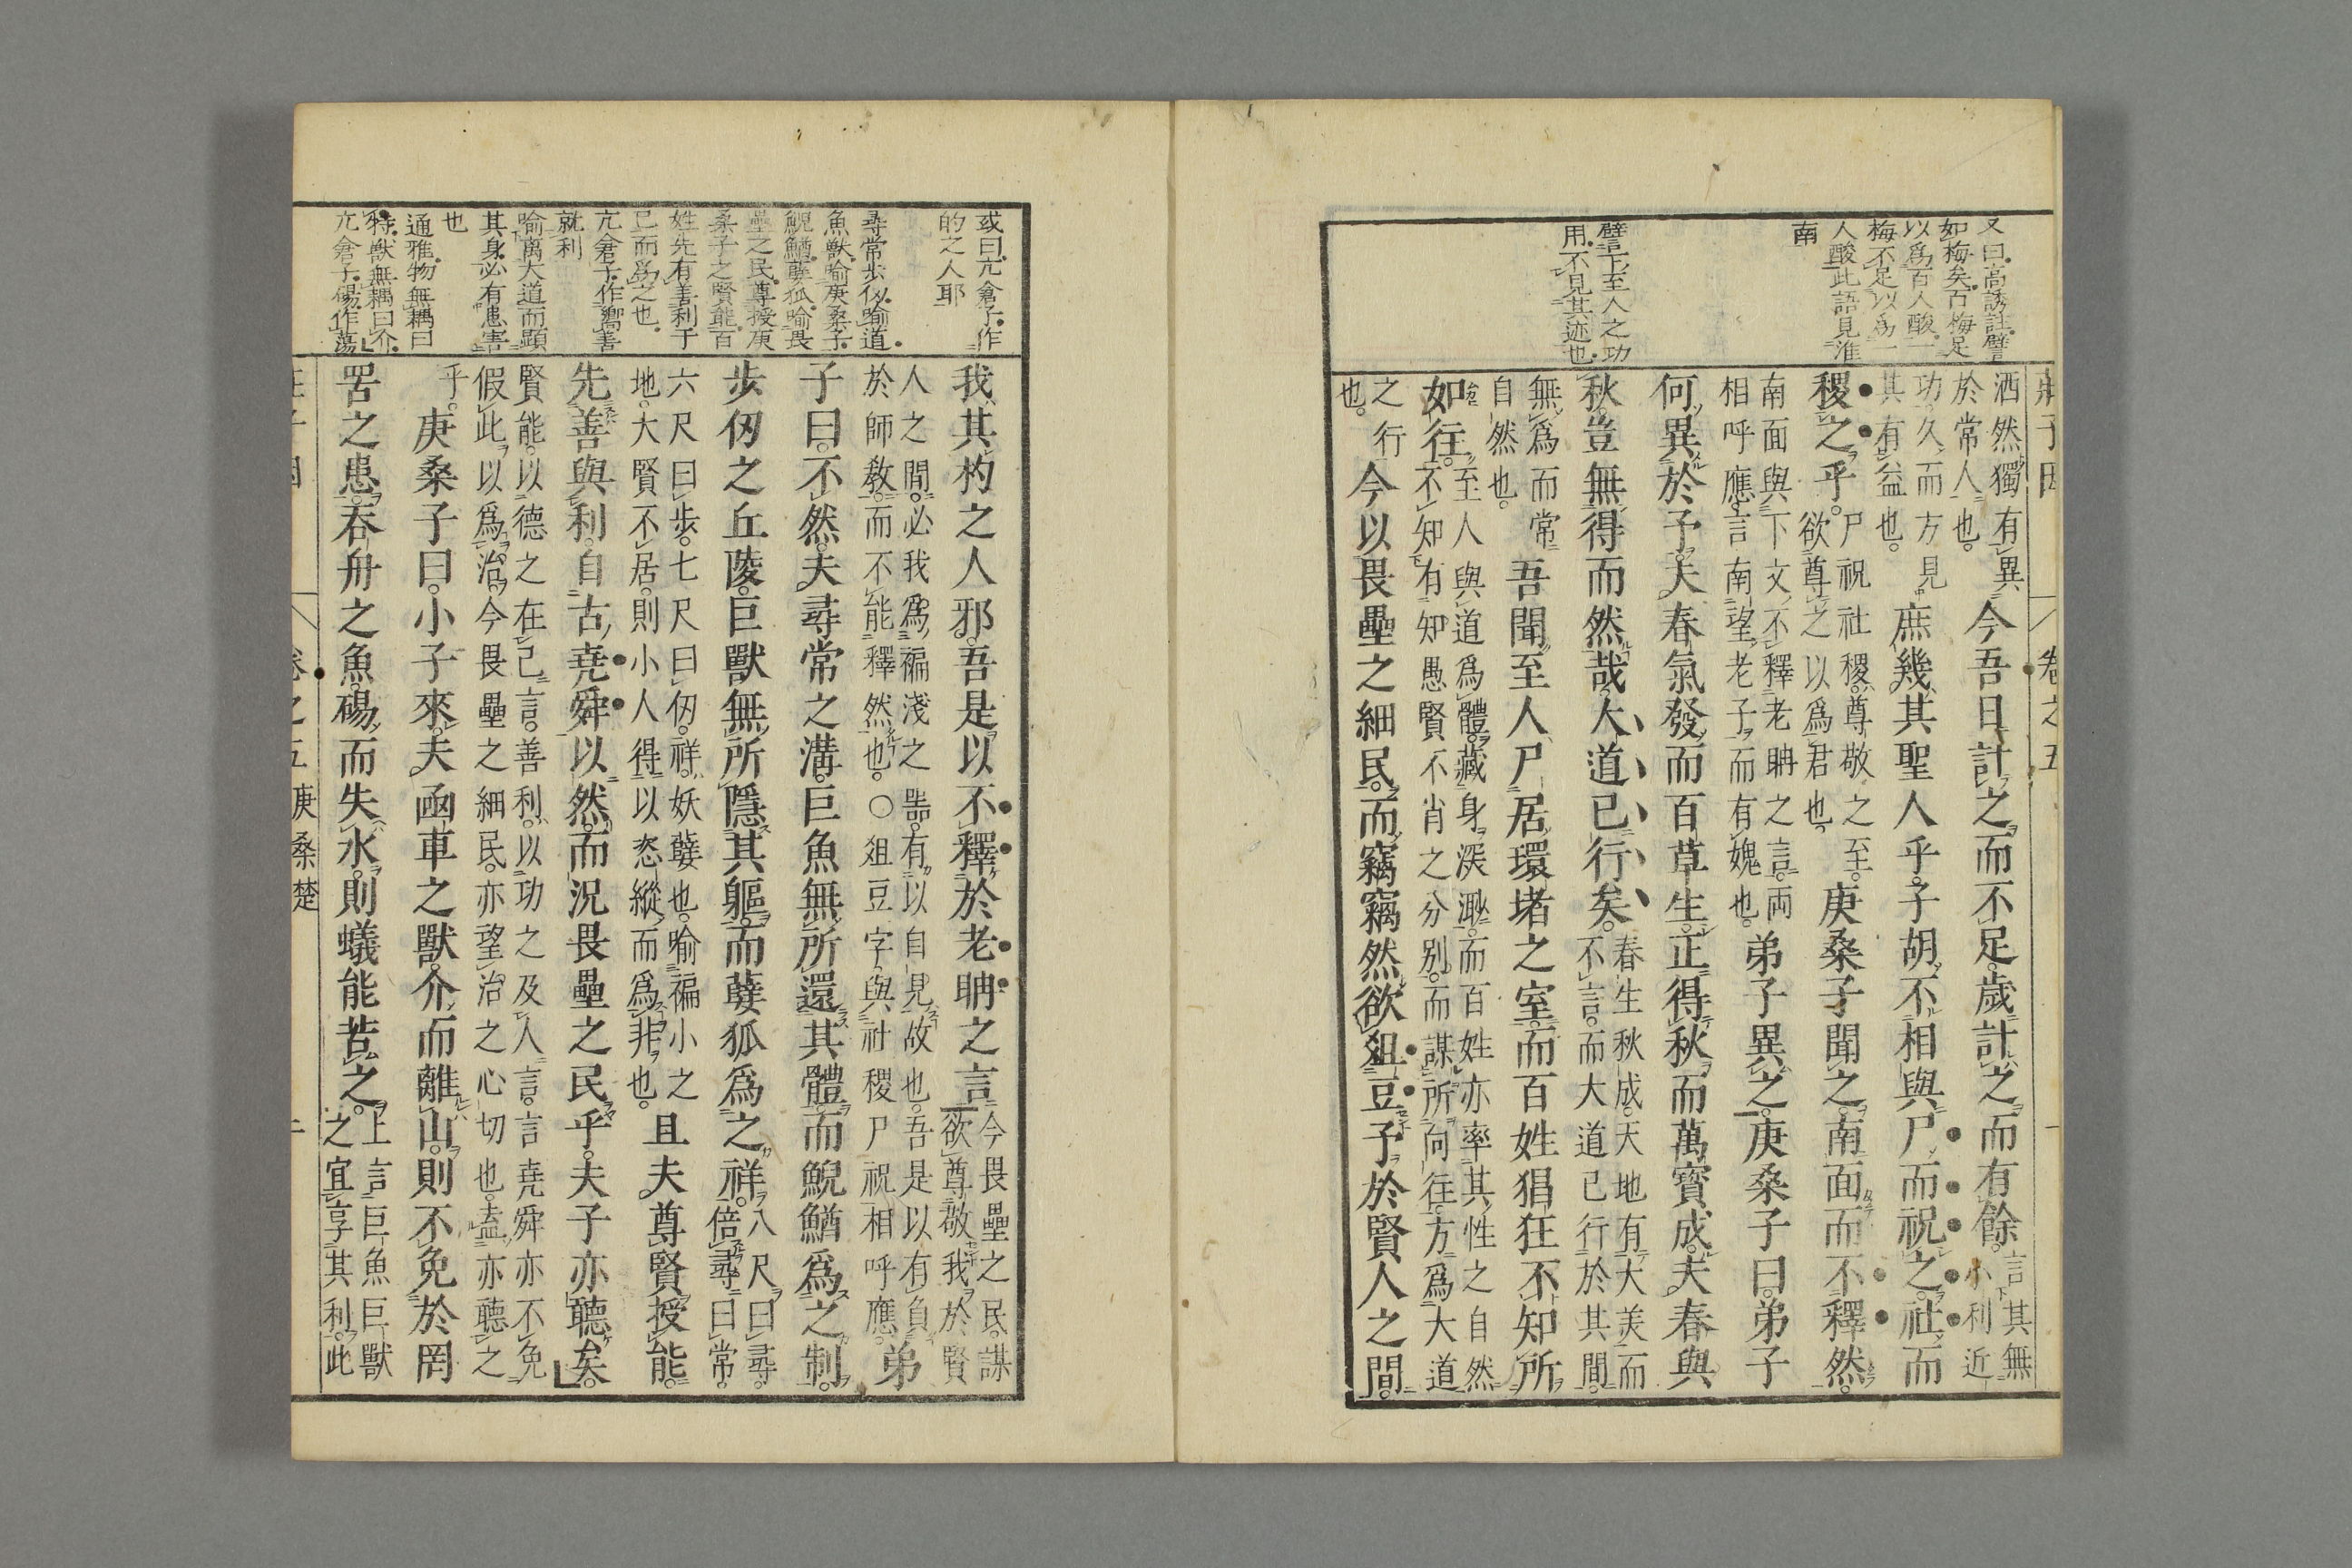 莊子因 卷之五
又曰高誘註譬
如梅矣百梅足
以爲百人酸一
梅不足以爲一
人酸此語見淮
南
譬下至人之功
用不見其迹也
洒然獨有異
於常人也
今吾日計之而不足歲計之而有餘言其無小利近
功久而方見
其有益也
庶幾其聖人乎子胡不相與尸而祝之社而
稷之乎尸祝社稷尊敬之至欲尊之以爲君也庚桑子聞之南面而不釋然
南面與下文不釋老聃之言兩
相呼應言南望老子而有媿也
弟子異之庚桑子曰弟子
何異於予夫春氣發而百草生正得秋而萬寶成夫春與
秋豈無得而然哉大道已行矣春生秋成天地有大美而不言而大道已行於其間
無爲而常
自然也
吾聞至人尸居環堵之室而百姓猖狂不知所
如往至人與道爲體藏身深渺而百姓亦率其性之自然不知有知愚賢不肖之分别而謀所向往方爲大道
之行
也
今以畏壘之細民而竊竊然欲俎豆予於賢人之間
或曰亢倉子作
的之人耶
尋常步仭喻道
魚獸喻庚桑子
鯢鰌孽狐喻畏
壘之民尊授庚
桑子之賢能百
姓先有善利于
已而爲之也
亢倉子作嚮善
就利
喻离大道而顕
其身必有患害
也
通雅物無耦曰
特獸無耦曰介
亢倉子碭作蕩
我其杓之人邪吾是以不釋於老聃之言今畏壘之民謀欲尊敬我於賢
人之間必我爲褊淺之噐有以自見故也吾是以有負
於師敎而不能釋然也○俎豆字與社稷尸祝相呼應
弟
子曰不然夫尋常之溝巨魚無所還其體而鯢鰌爲之制
步仭之丘陵巨獸無所隱其軀而孽狐爲之祥八尺曰尋倍尋曰常
六尺曰步七尺曰仭祥妖孽也喻褊小之
地大賢不居則小人得以恣縱而爲非也
且夫尊賢授能
先善與利自古堯舜以然而況畏壘之民乎夫子亦聽矣
賢能以德之在己言善利以功之及人言言堯舜亦不免
假此以爲治今畏壘之細民亦望治之心切也盍亦聽之
乎
庚桑子曰小子來夫凾車之獸介而離山則不免於罔
罟之患吞舟之魚碭而失水則蟻能苦之上言巨魚巨獸之宜享其利此
卷之五 庚桑楚